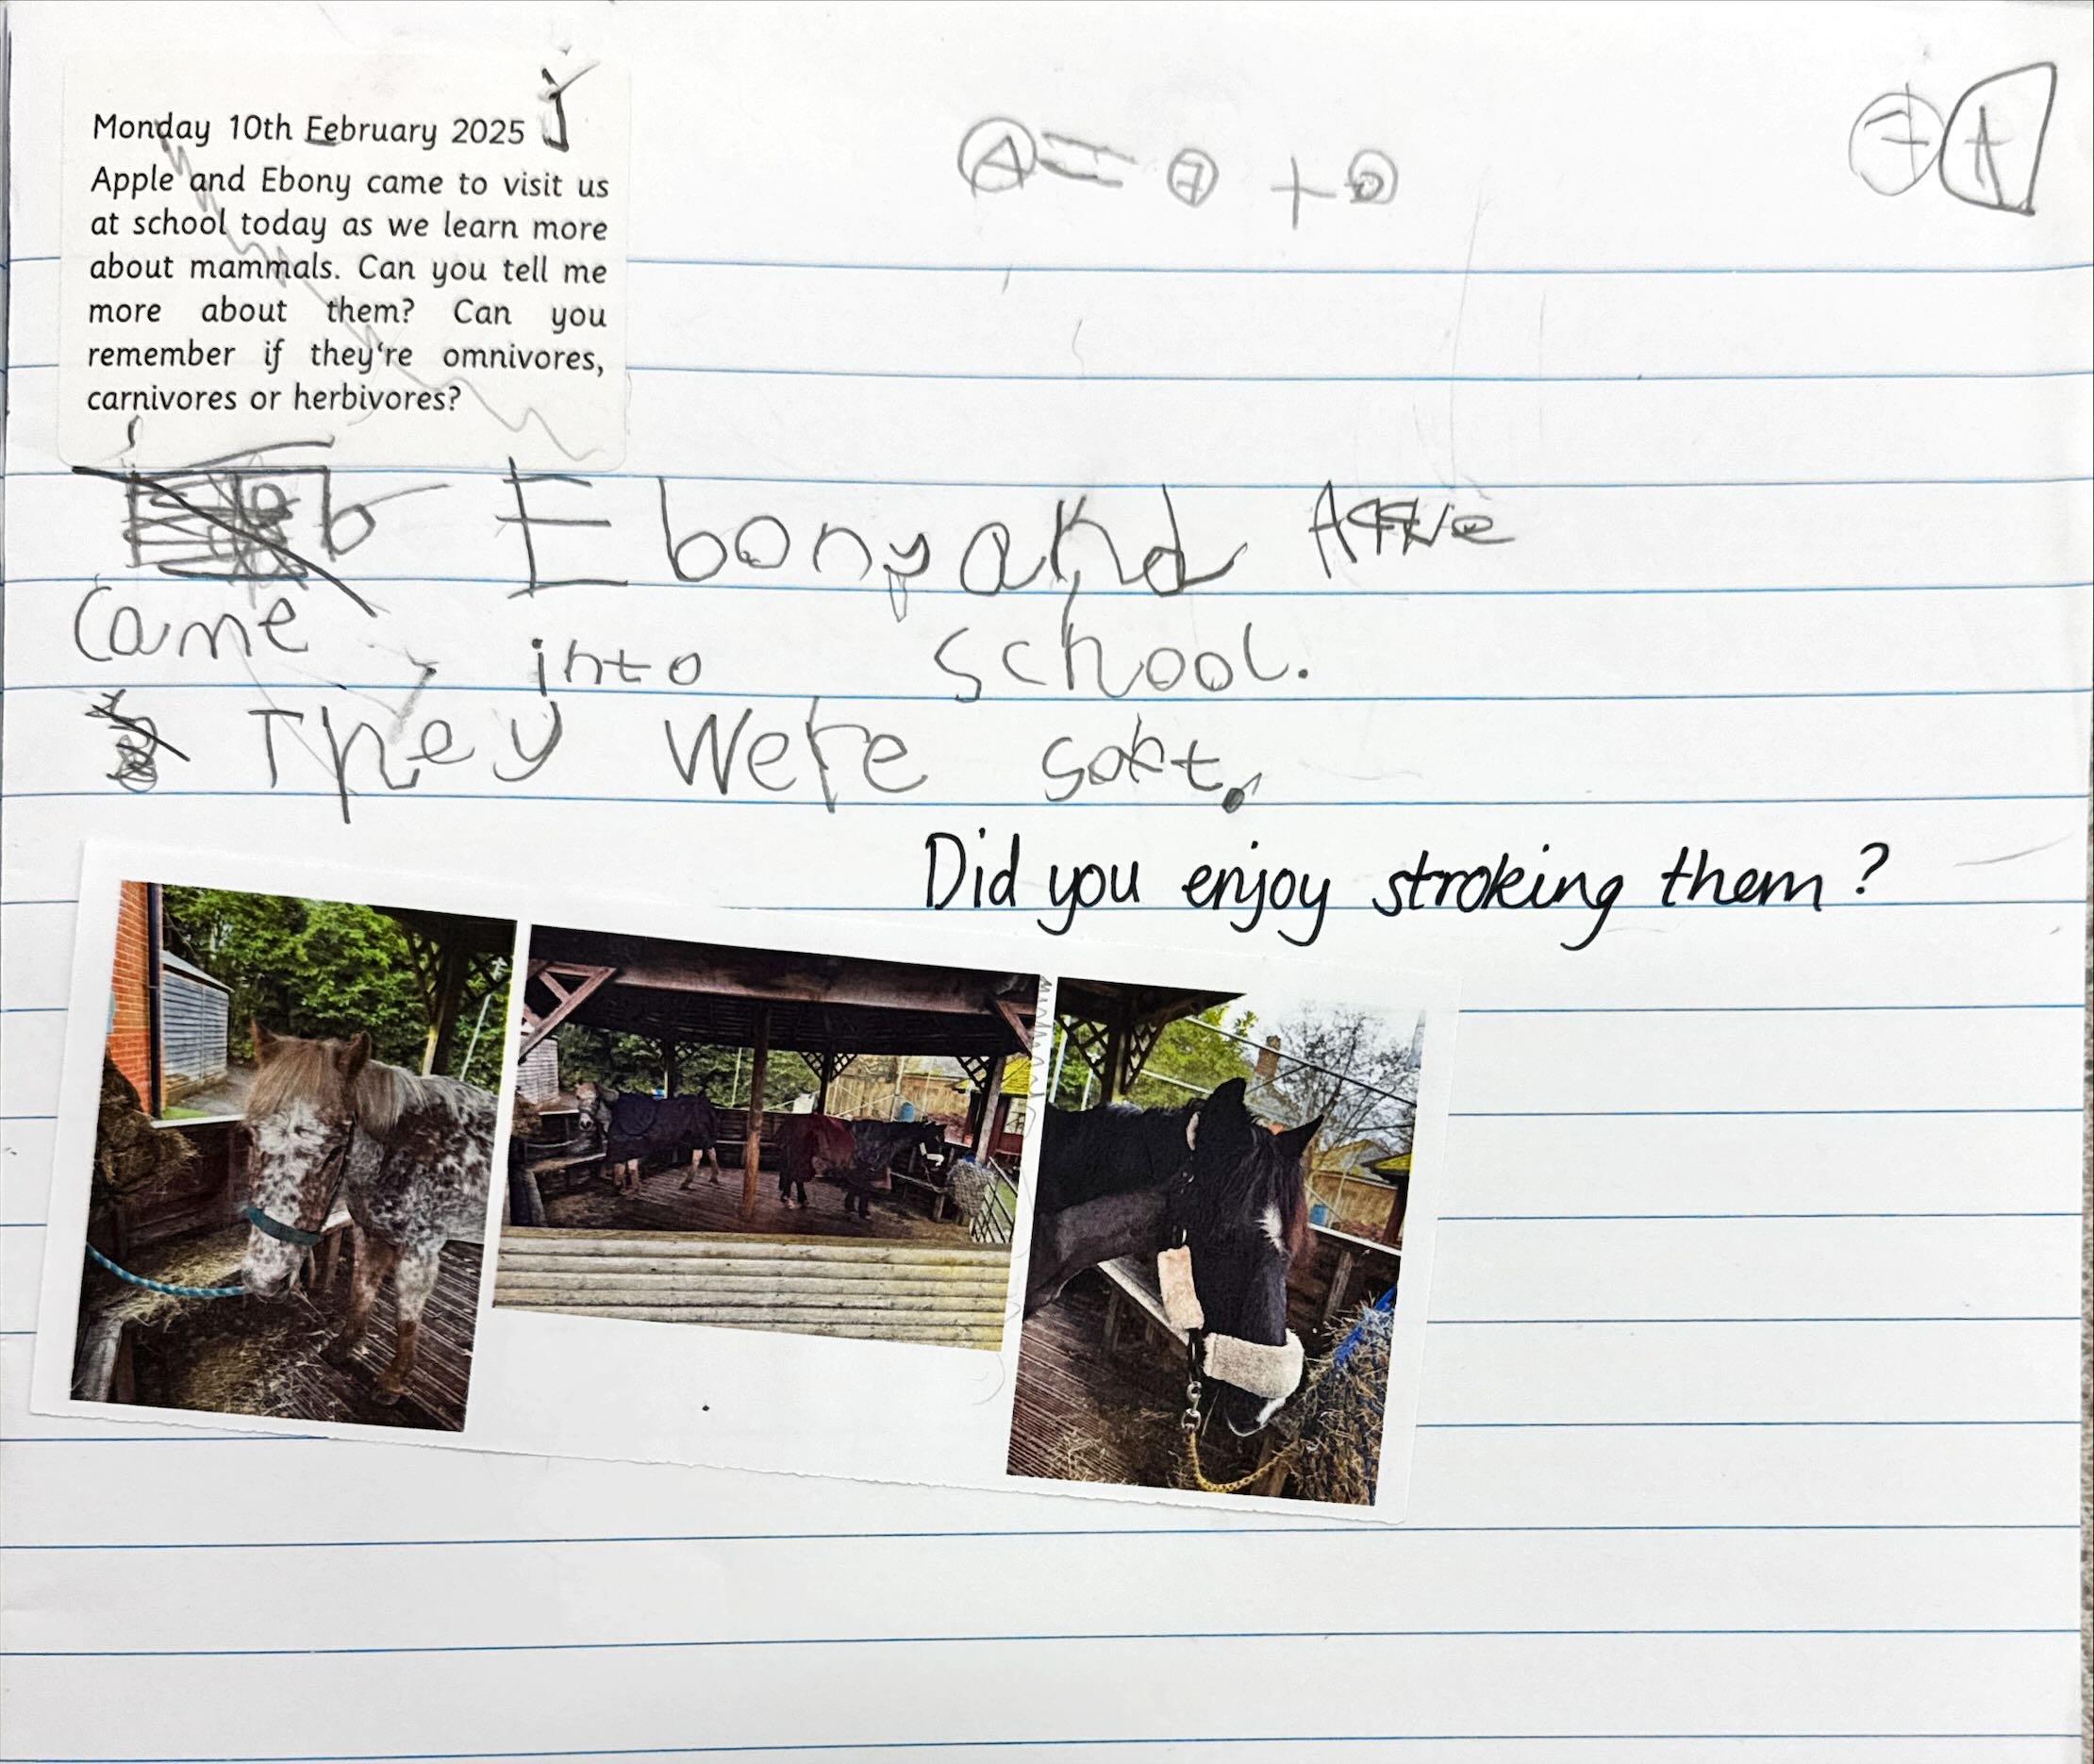 Monday 10th Eebruary 2025
Apple and Ebony came to visit us
at school today as we learn more
about mammals. Can you tell me
more about them? Can you
remember if they're omnivores,
carnivores or herbivores?
A = 7 +
Ebony and
came into school.
They were soft.
Did you enjoy stroking them?